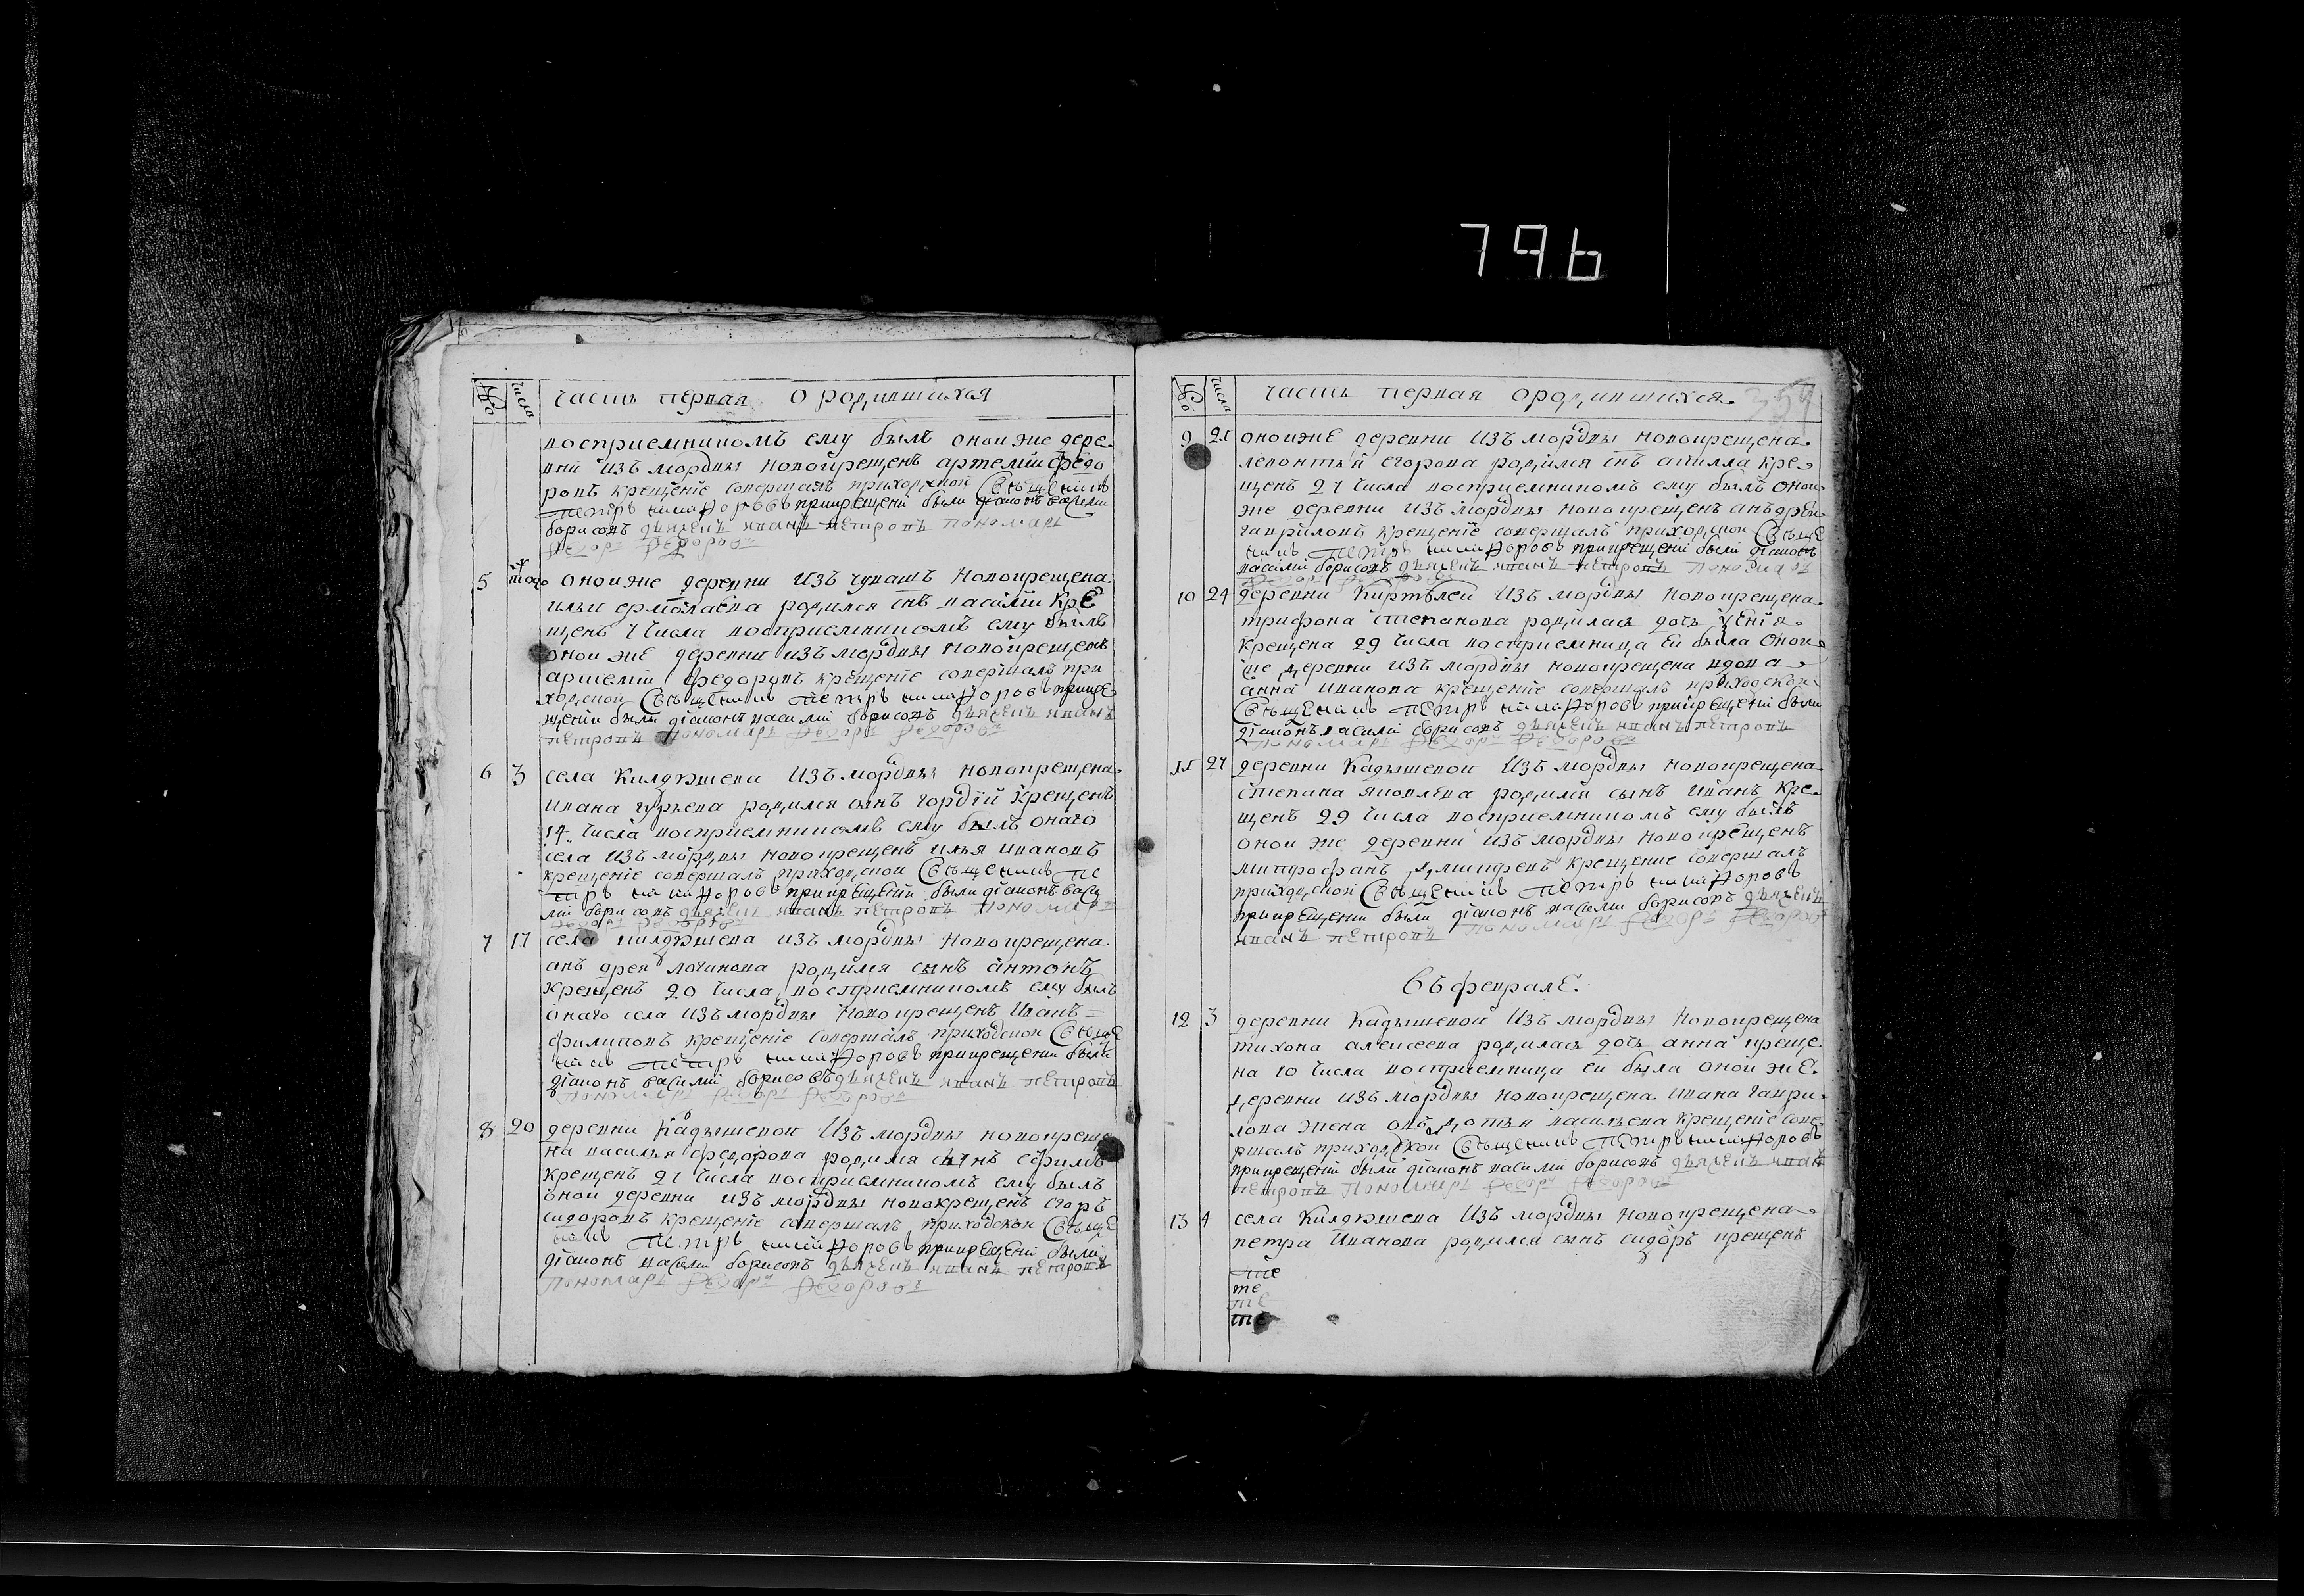 796
№
числа
часть первая о родившихся
восприемникомъ ему былъ оной же дере
вни изъ мордвы новокрещенъ артемии федо
ровъ крещение совершалъ приходской Священникъ
Петръ никифоровъ при крещени были диаконъ василии
борисовъ дьячекъ иванъ петровъ пономарь
Федоръ Федоровъ
5 того оной же деревни изъ чувашъ новокрещена
ильи ермолаева родился снъ василии кре
щенъ 7 числа восприемникомъ ему былъ
оной же деревни изъ мордвы новокрещенъ
артемии федоровъ крещение совершалъ при
ходской Священникъ Петръ никифоровъ при кре
щении были диаконъ василии борисовъ дьячекъ иванъ
петровъ пономарь Федоръ Федоровъ
6 3 села Килдюшева изъ мордвы новокрещена
ивана гурьева родился снъ гордѣй крещенъ
14 числа восприемникомъ ему былъ онаго
села изъ мордвы новокрещенъ илья ивановъ
крещение совершалъ приходской Священникъ Пе
тръ никифоровъ при крещении были диаконъ васи
лии борисовъ дьячекъ иванъ петровъ пономарь
Федоръ Федоровъ
7 17 села килдюшева изъ мордвы новокрещена
анъдрея логинова родился сынъ антонъ
крещенъ 20 числа восприемникомъ ему былъ
онаго села изъ мордвы новокрещенъ иванъ
филиповъ крещение совершалъ приходской Священ
никъ Петръ никифоровъ при крещении были
диаконъ василии борисовъ дьячекъ иванъ петровъ
пономарь Федоръ Федоровъ
8 20 деревни Кадышевой изъ мордвы новокреще
на василья федорова родился сынъ ефимъ
крещенъ 27 числа восприемникомъ ему былъ
оной деревни изъ мордвы новокрещенъ егоръ
сидоровъ крещение совершалъ приходской Священ
никъ Петръ никифоровъ при крещени были
диаконъ василии борисовъ дьячекъ иванъ петровъ
пономарь Федоръ Федоровъ
№
числа
часть первая о родившихся 359
9 21 оной же деревни изъ мордвы новокрещена
левонтья егорова родился снъ акилла кре
щенъ 27 числа восприемникомъ ему былъ оной
же деревни изъ мордвы новокрещенъ анъдреи
гавриловъ крещение совершалъ приходской Священ
никъ Петръ никифоровъ при крещени были диаконъ
василии борисовъ дьячекъ иванъ петровъ пономарь
Федоръ Федоровъ
10 24 деревни Киртѣлеи изъ мордвы новокрещена
трифона степанова родилась дочь
крещена 29 числа восприемница ей была оной
же деревни изъ мордвы новокрещена вдова
анна иванова крещение совершалъ приходской
Священникъ Петръ никифоровъ при крещени были
диаконъ василии борисовъ дьячекъ иванъ петровъ
пономарь Федоръ Федоровъ
11 27 деревни Кадышевой изъ мордвы новокрещена
степана яковлева родился сынъ иванъ кре
щенъ 29 числа восприемникомъ ему былъ
оной же деревни изъ мордвы новокрещенъ
митрофанъ дмитревъ крещение совершалъ
приходской Священникъ Петръ никифоровъ
при крещении были диаконъ василии борисовъ дьячекъ
иванъ петровъ пономарь Федоръ Федоровъ
Въ феврале.
12 3 деревни Кадышевой изъ мордвы новокрещена
тихона алексеева родилась дочь анна креще
на 10 числа восприемница ей была оной же
деревни изъ мордвы новокрещена ивана гаври
лова жена овъдотья васильева крещение сове
ршалъ приходской Священникъ Петръ никифоровъ
при крещени были диаконъ василии борисовъ дьячекъ иванъ
петровъ пономарь Федоръ Федоровъ
13 4 села Килдюшева изъ мордвы новокрещена
петра иванова родился сынъ сидоръ крещенъ
Пе
пе
пе
пе